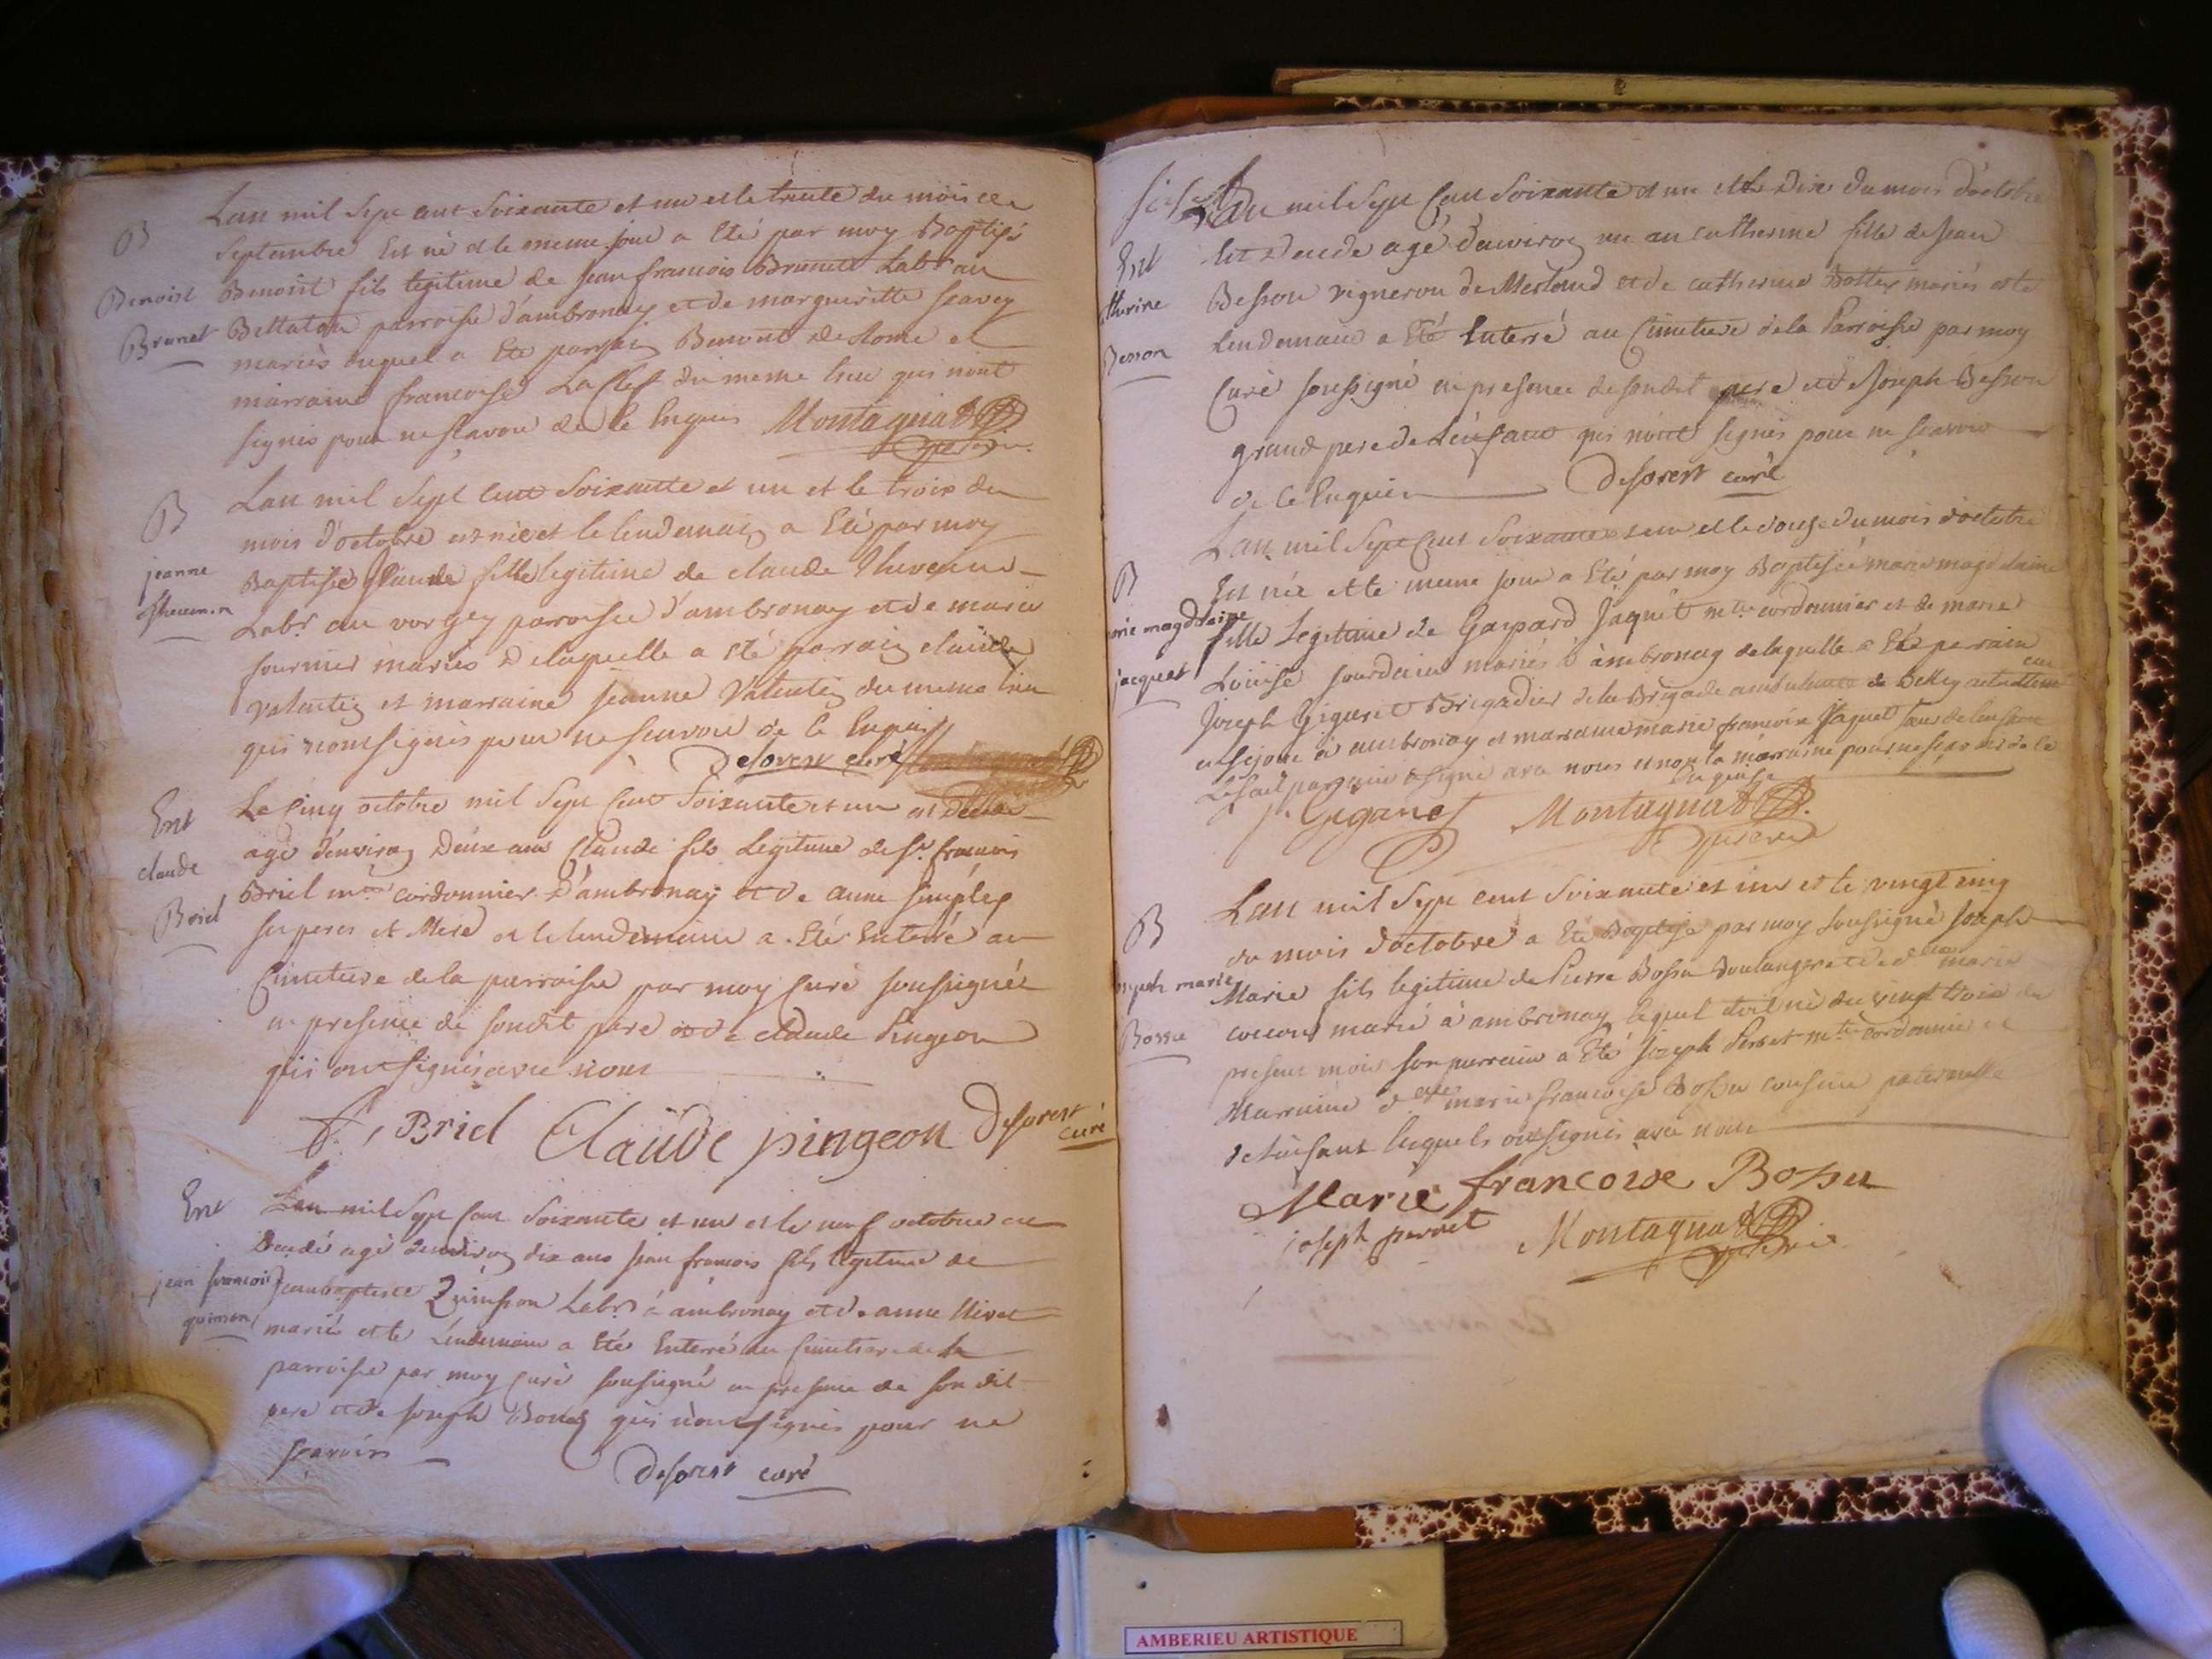 B
Benoist
Brunet
Lan mil Sept cent Soixante et un et le trente du mois de
Septembre Est né et le meme jour a Eté par moy Baptisé
Benoist fils legitime de Jean francois Brunet Labr au
parroisse d'ambronay et de margueritte
mariés duquel a Eté parrain Benoist et
marraine francoise du meme lieu qui n'ont
signés pour ne scavoir de ce Enquis Montagnat
B
jeanne
Lan mil Sept Cent Soixante et un et le trois du
mois d'octobre est née et le lendemain a Eté par moy
Baptisée fille legitime de claude
Labr au parroisse d'ambronay et de marie
fournier mariés de laquelle a eté parrain claude
Valentin et marraine jeanne Valentin du meme lieu
qui n'ont signés pour ne scavoir de ce Enquis
Deforest curé
Ent
claude
Briel
Le Cinq octobre mil Sept Cent Soixante et un est Décédé
agé d'environ Deux ans Claude fils Legitime de Sr. francois
Briel mtre cordonnier D'ambronay et de anne
ses peres et Mere et le lendemain a Eté Enterré au
Cimetiere de la parroisse par moy Curé soussigné
en presence de sondit pere et de claude Pingeon
qui ont signés avec nous
f. Briel Claude pingeon Deforest curé
Ent
jean francois
quinson
Lan mil Sept Cent Soixante et un et le neuf octobre est
Decedé agé d'environ dix ans Jean francois fils legitime de
Jean baptiste Quinson Labr à ambronay et de anne
mariés et le Lendemain a Eté Enterré au Cimetiere de la
parroisse par moy Curé soussigné en presence de son dit
pere et de Joseph qui n'ont signés pour ne
scavoir
deforest curé
Ent
Besson
Lan mil Sept Cent Soixante et un et le Dix du mois d'octobre
Est Decede agé d'environ un an catherine fille de Jean
Besson vigneron de et de catherine mariés et le
Lendemain a Eté Enterré au Cimetiere de la Parroisse par moy
Curé soussigné en presence de sondit pere et de Joseph Besson
grand pere de L'enfant qui n'ont signés pour ne scavoir
de ce Enquis deforest curé
B
magdelaine
jacquet
Lan mil Sept Cent Soixante et un et le douze du mois d'octobre
Est née et le meme jour a Eté par moy Baptisée marie magdelaine
fille Legitime de Gaspard Jaquet mtre cordonnier et de marie
Loüise jourdain mariés à ambronay de laquelle a Eté parrain
Joseph Brigadier de la Brigade ambulante de Belley actuellement
en sejour à ambronay et marraine marie francoise Jaquet de
Ledit parrain a signé avec nous et non la marraine pour ne scavoir de ce
Enquise
Montagnat
B
joseph marie
Bossu
Lan mil Sept cent Soixante et un et le vingt cinq
du mois d'octobre a Eté Baptisé par moy soussigné Joseph
Marie fils legitime de Pierre Bossu Boulanger et de marie
mariés à ambronay lequel étoit né du vingt trois du
present mois son parrain a Eté Joseph Perret mtre cordonnier et
Marraine marie francoise Bossu cousine paternelle
de l'enfant lesquels ont signés avec nous
Marie francoise Bossu
joseph perret Montagnat
AMBERIEU ARTISTIQUE